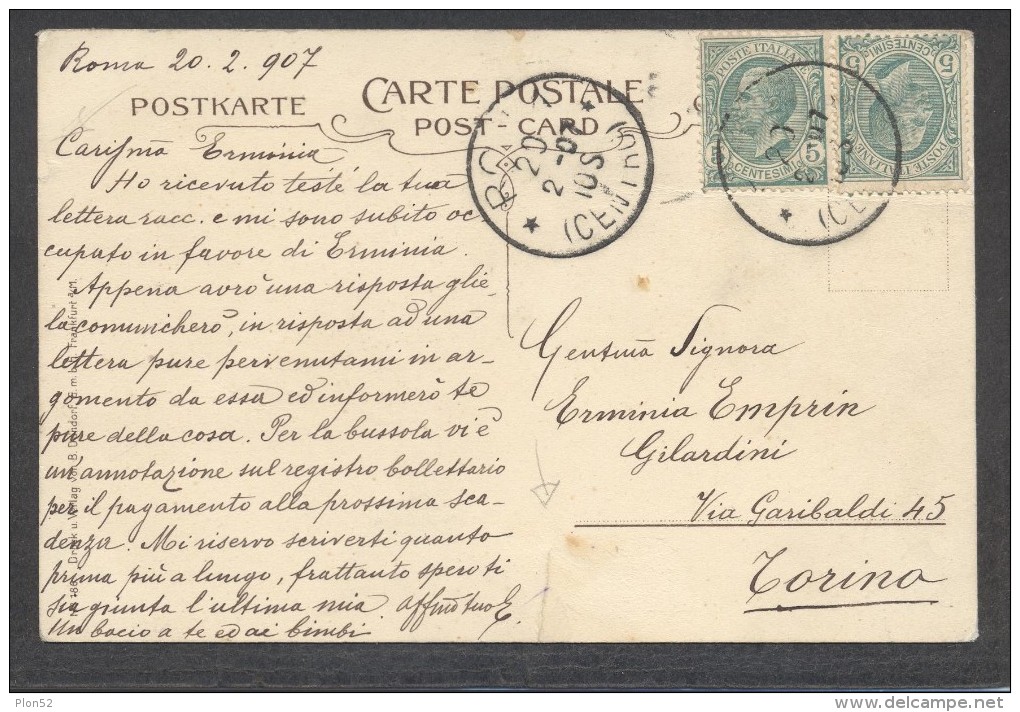 Roma 20.2.907
POSTKARTE
CARTE POSTALE
POST-CARD
Carissma Erminia
Ho ricevuto testè la tua
lettera racc. e mi sono subito oc-
cupato in favore di Erminia.
Appena avrò una risposta glie-
la comunicherò, in risposta ad una
lettera pure pervenutami in ar-
gomento da essa ed informerò te
pure della cosa. Per la bussola vi è
un'annotazione sul registro bollettario
per il pagamento alla prossima sca-
denza. Mi riservo scriverti quanto
prima più a lungo, frattanto spero ti
sia giunta l'ultima mia affmo tuo E.
Un bacio a te ed ai bimbi.
Gentma Signora
Erminia Emprin
Gilardini
Via Garibaldi 45
Torino
POSTE ITALIANE
5 5
CENTESIMI
POSTE ITALIANE
5 5
CENTESIMI
20
2 -07
10S
(CENTRO)
(CE
Druck u. Verlag von B. Dondorf, G.m.b.H., Frankfurt a/M.
Plon52
www.delcampe.net